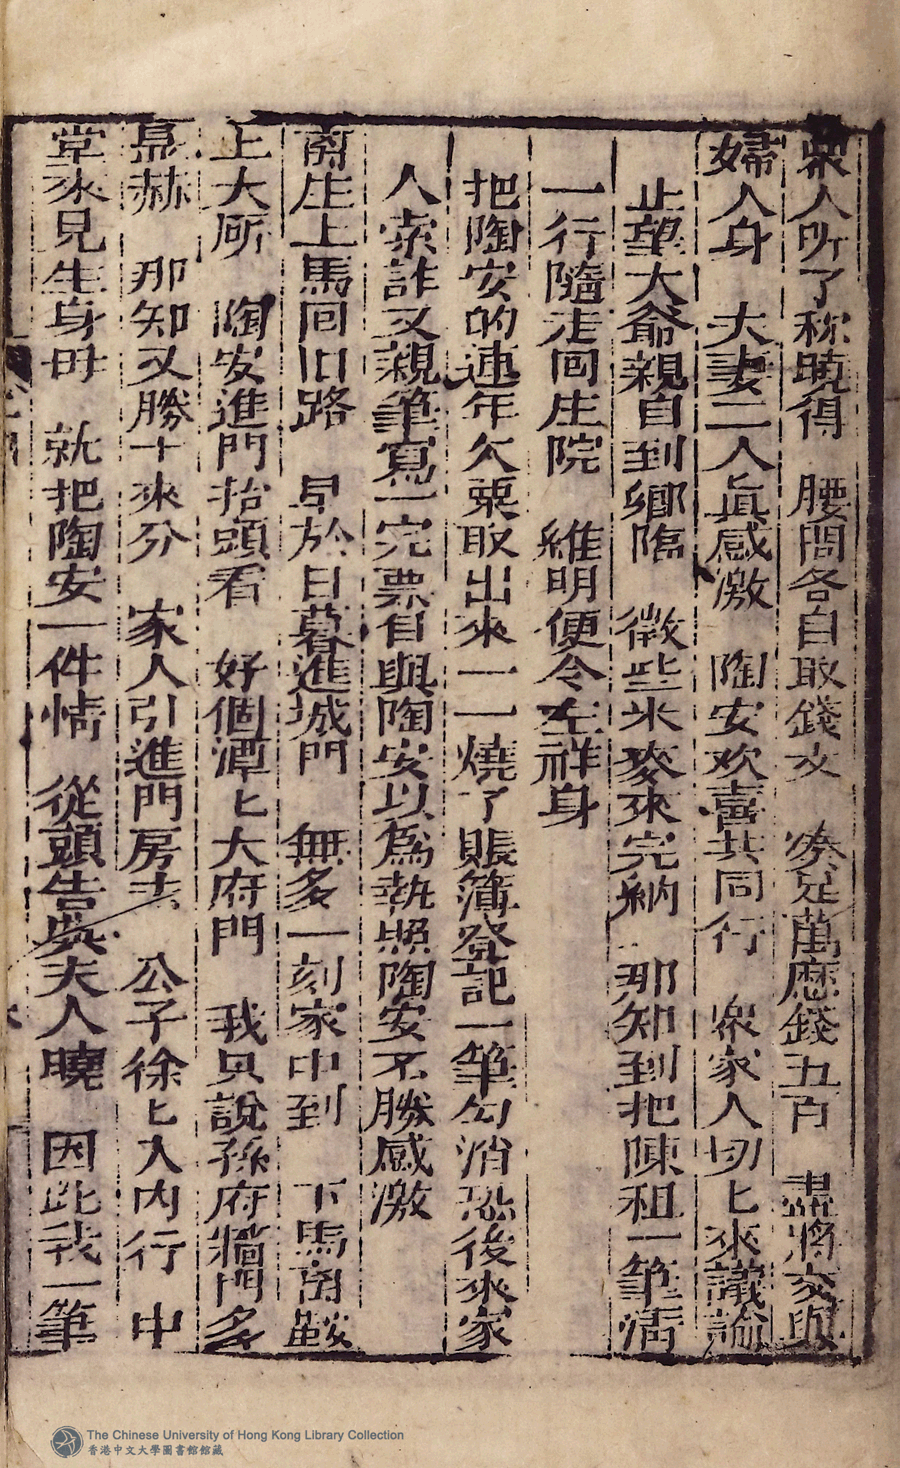 衆人听了称曉得　腰間各自取錢文　湊足萬應錢五百　盡將交與
婦人身　夫妻二人眞感激　陶安欢喜共同行　衆家人切匕來議論
止望大爺親自到鄉隂　徵些米麥來完納　那知到把陳租一筆淸
一行隨走回庄院　維明便令左祥身
把陶安的連年欠票取出來一一燒了賬簿登記一筆勾消恐後來家
人索詐又親筆寫一完票自與陶安以爲執照陶安不勝感激
离生上馬回旧路　早於日暮進城門　無多一刻家中到　下馬离鞍
上大厛　陶安進門抬頭看　好個潭匕大府門　我只說孫府牆門多
𭥍赫　那知又勝十來分　家人引進門房去　公子徐匕入内行　中
堂來見生身母　就把陶安一件情　從頭告與夫人曉　因此我一筆
The Chinese University of Hong Kong Library Collection
香港中文大學圖書館館藏